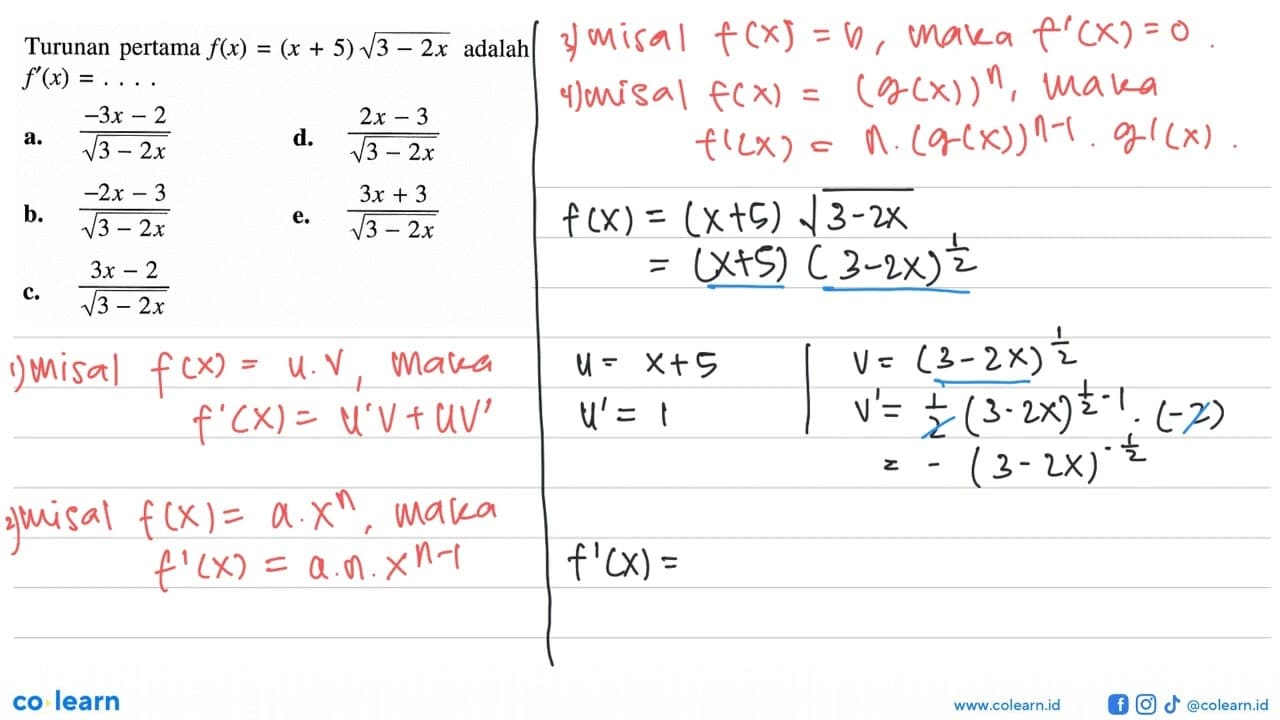 Turunan pertama f(x) = (x + 5) √(3 − 2x) adalah
f'(x) = . . . .
a. (−3x − 2)/√(3 − 2x) d. (2x − 3)/√(3 − 2x)
b. (−2x − 3)/√(3 − 2x) e. (3x + 3)/√(3 − 2x)
c. (3x − 2)/√(3 − 2x)
1) misal f(x) = u.v, maka
f'(x) = u'v + uv'
2) misal f(x) = a.x^n, maka
f'(x) = a.n.x^(n-1)
3) misal f(x) = b, maka f'(x) = 0.
4) misal f(x) = (g(x))^n, maka
f'(x) = n.(g(x))^(n-1) . g'(x).
f(x) = (x+5) √(3-2x)
= (x+5) (3-2x)^(1/2)
u = x+5
u' = 1
v = (3-2x)^(1/2)
v' = 1/2 (3-2x)^(1/2 - 1) . (-2)
= - (3-2x)^(-1/2)
f'(x) =
co learn
www.colearn.id
@colearn.id